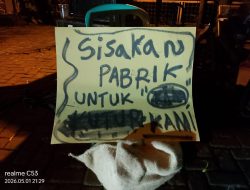 Sisakan
PABRIK
UNTUK
KAMI
realme C53
2026.05.01 21:29